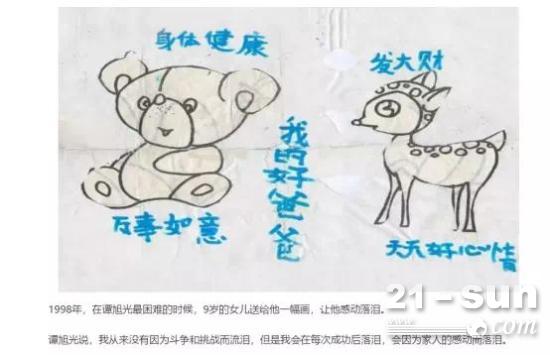 身体健康
发大财
我的好爸爸
万事如意
天天好心情
21-sun
.com
1998年，在谭旭光最困难的时候，9岁的女儿送给他一幅画，让他感动落泪。
谭旭光说，我从来没有因为斗争和挑战而流泪，但是我会在每次成功后落泪，会因为家人的感动而落泪。